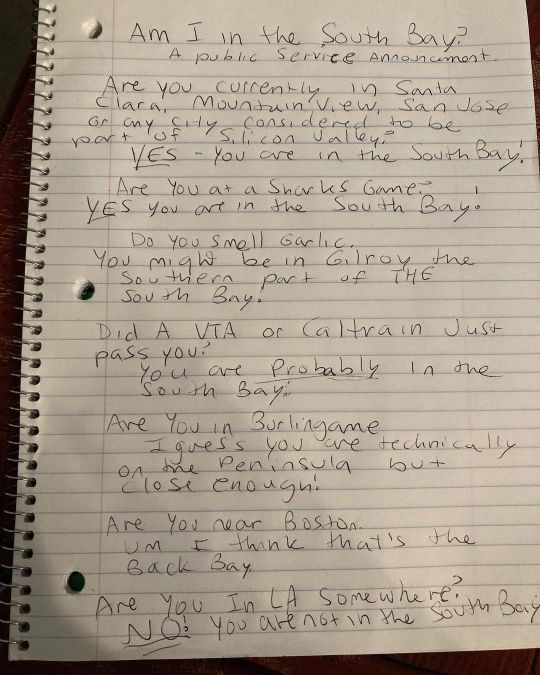 Am I in the South Bay?
A public Service Announcement.
Are you currently in Santa
Clara, Mountain View, San Jose
or any city considered to be
part of Silicon Valley?
YES - you are in the South Bay!
Are You at a Sharks Game?
YES you are in the South Bay!
Do you smell Garlic.
You might be in Gilroy the
Southern part of THE
South Bay!
Did A VTA or Caltrain Just
pass you?
You are Probably in the
South Bay!
Are You in Burlingame
I guess you are technically
on the Peninsula but
close enough!
Are You near Boston.
um I think that's the
Back Bay
Are You In LA Somewhere?
NO! you are not in the South Bay